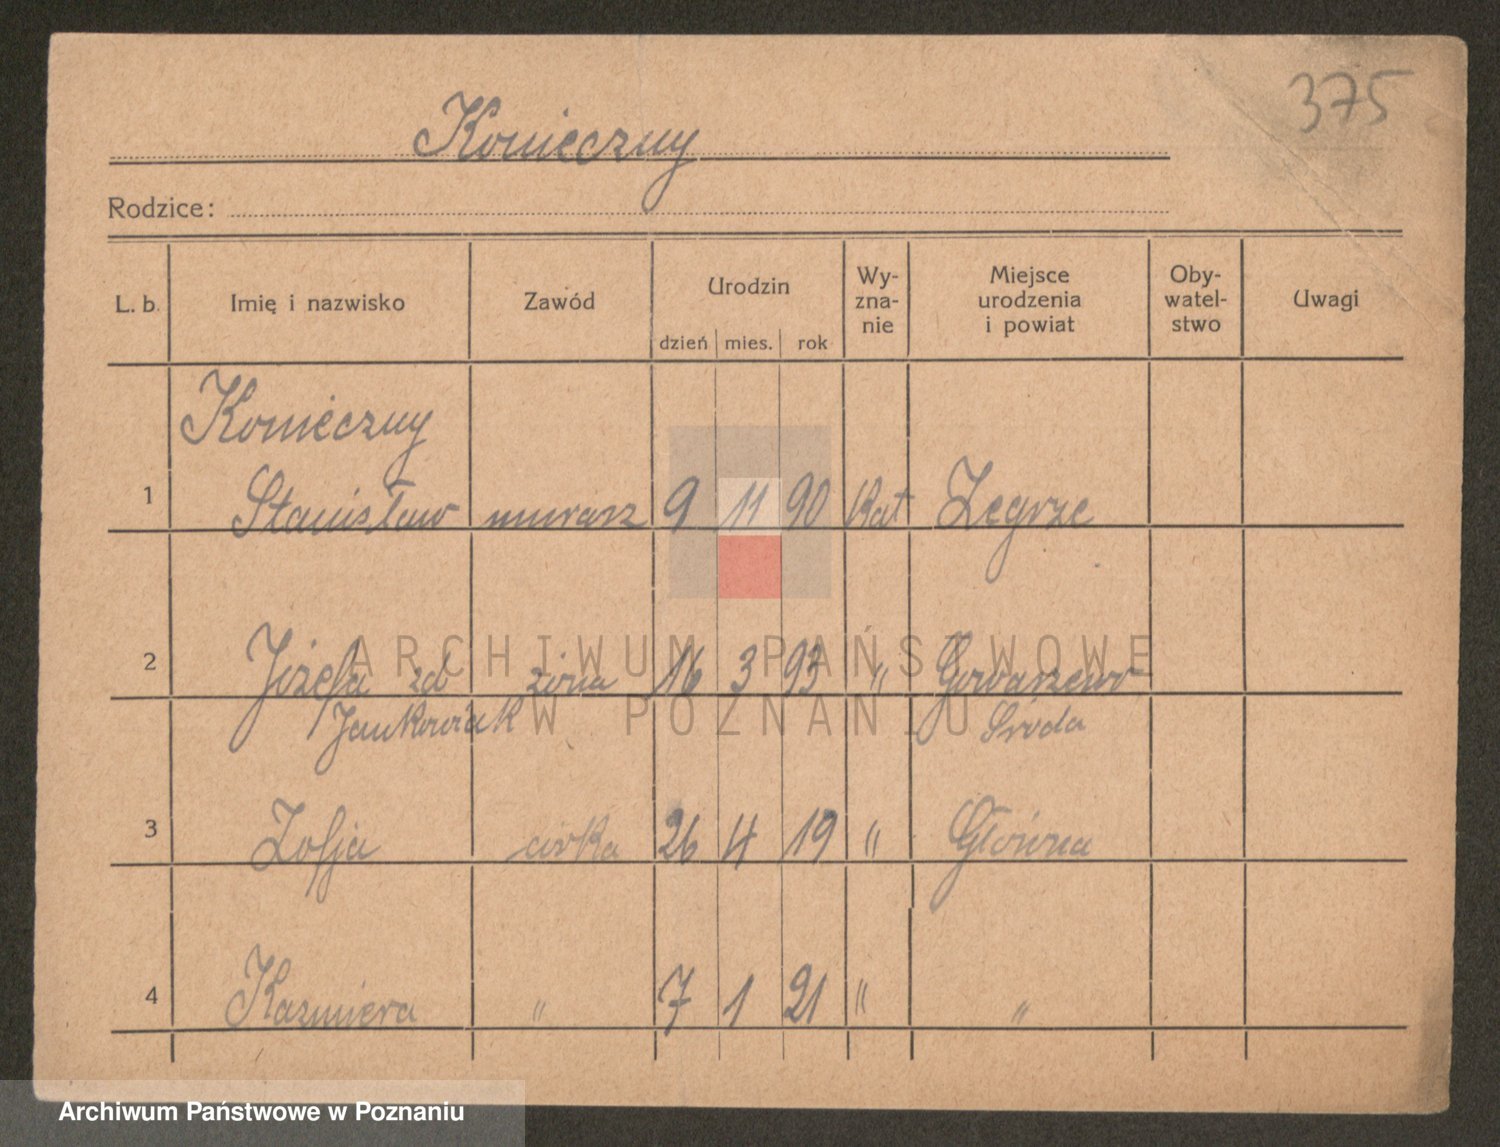 375
Konieczny
Rodzice:
L. b. Imię i nazwisko Zawód Urodzin dzień mies. rok Wy-zna-nie Miejsce urodzenia i powiat Oby-watel-stwo Uwagi
Konieczny
1 Stanisław murarz 9 11 90 Kat Zegrze
2 Józefa zd żona 16 3 93 " Gowarzewo
Jankowiak Środa
3 Zofja córka 26 4 19 " Główna
4 Kazmiera " 7 1 21 " "
ARCHIWUM PAŃSTWOWE
W POZNANIU
Archiwum Państwowe w Poznaniu